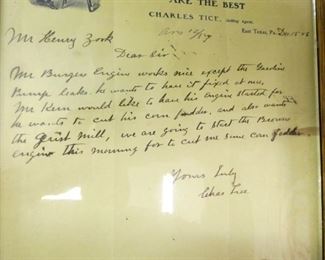 ARE THE BEST
CHARLES TICE, Selling Agent,
East Texas, Pa., Dec 15
Mr Henry Zook
Dear Sir
Mr Burges Engin works nice except the Gasolin
Pump leaks. he wants to have it fixed at once,
Mr Kern would like to have his Engine started for
he wants to cut his corn fodder, and also wants
the Grist Mill, we are going to start the Brown
engin this morning for to cut me some corn fodder
Yours Truly
Chas Tice